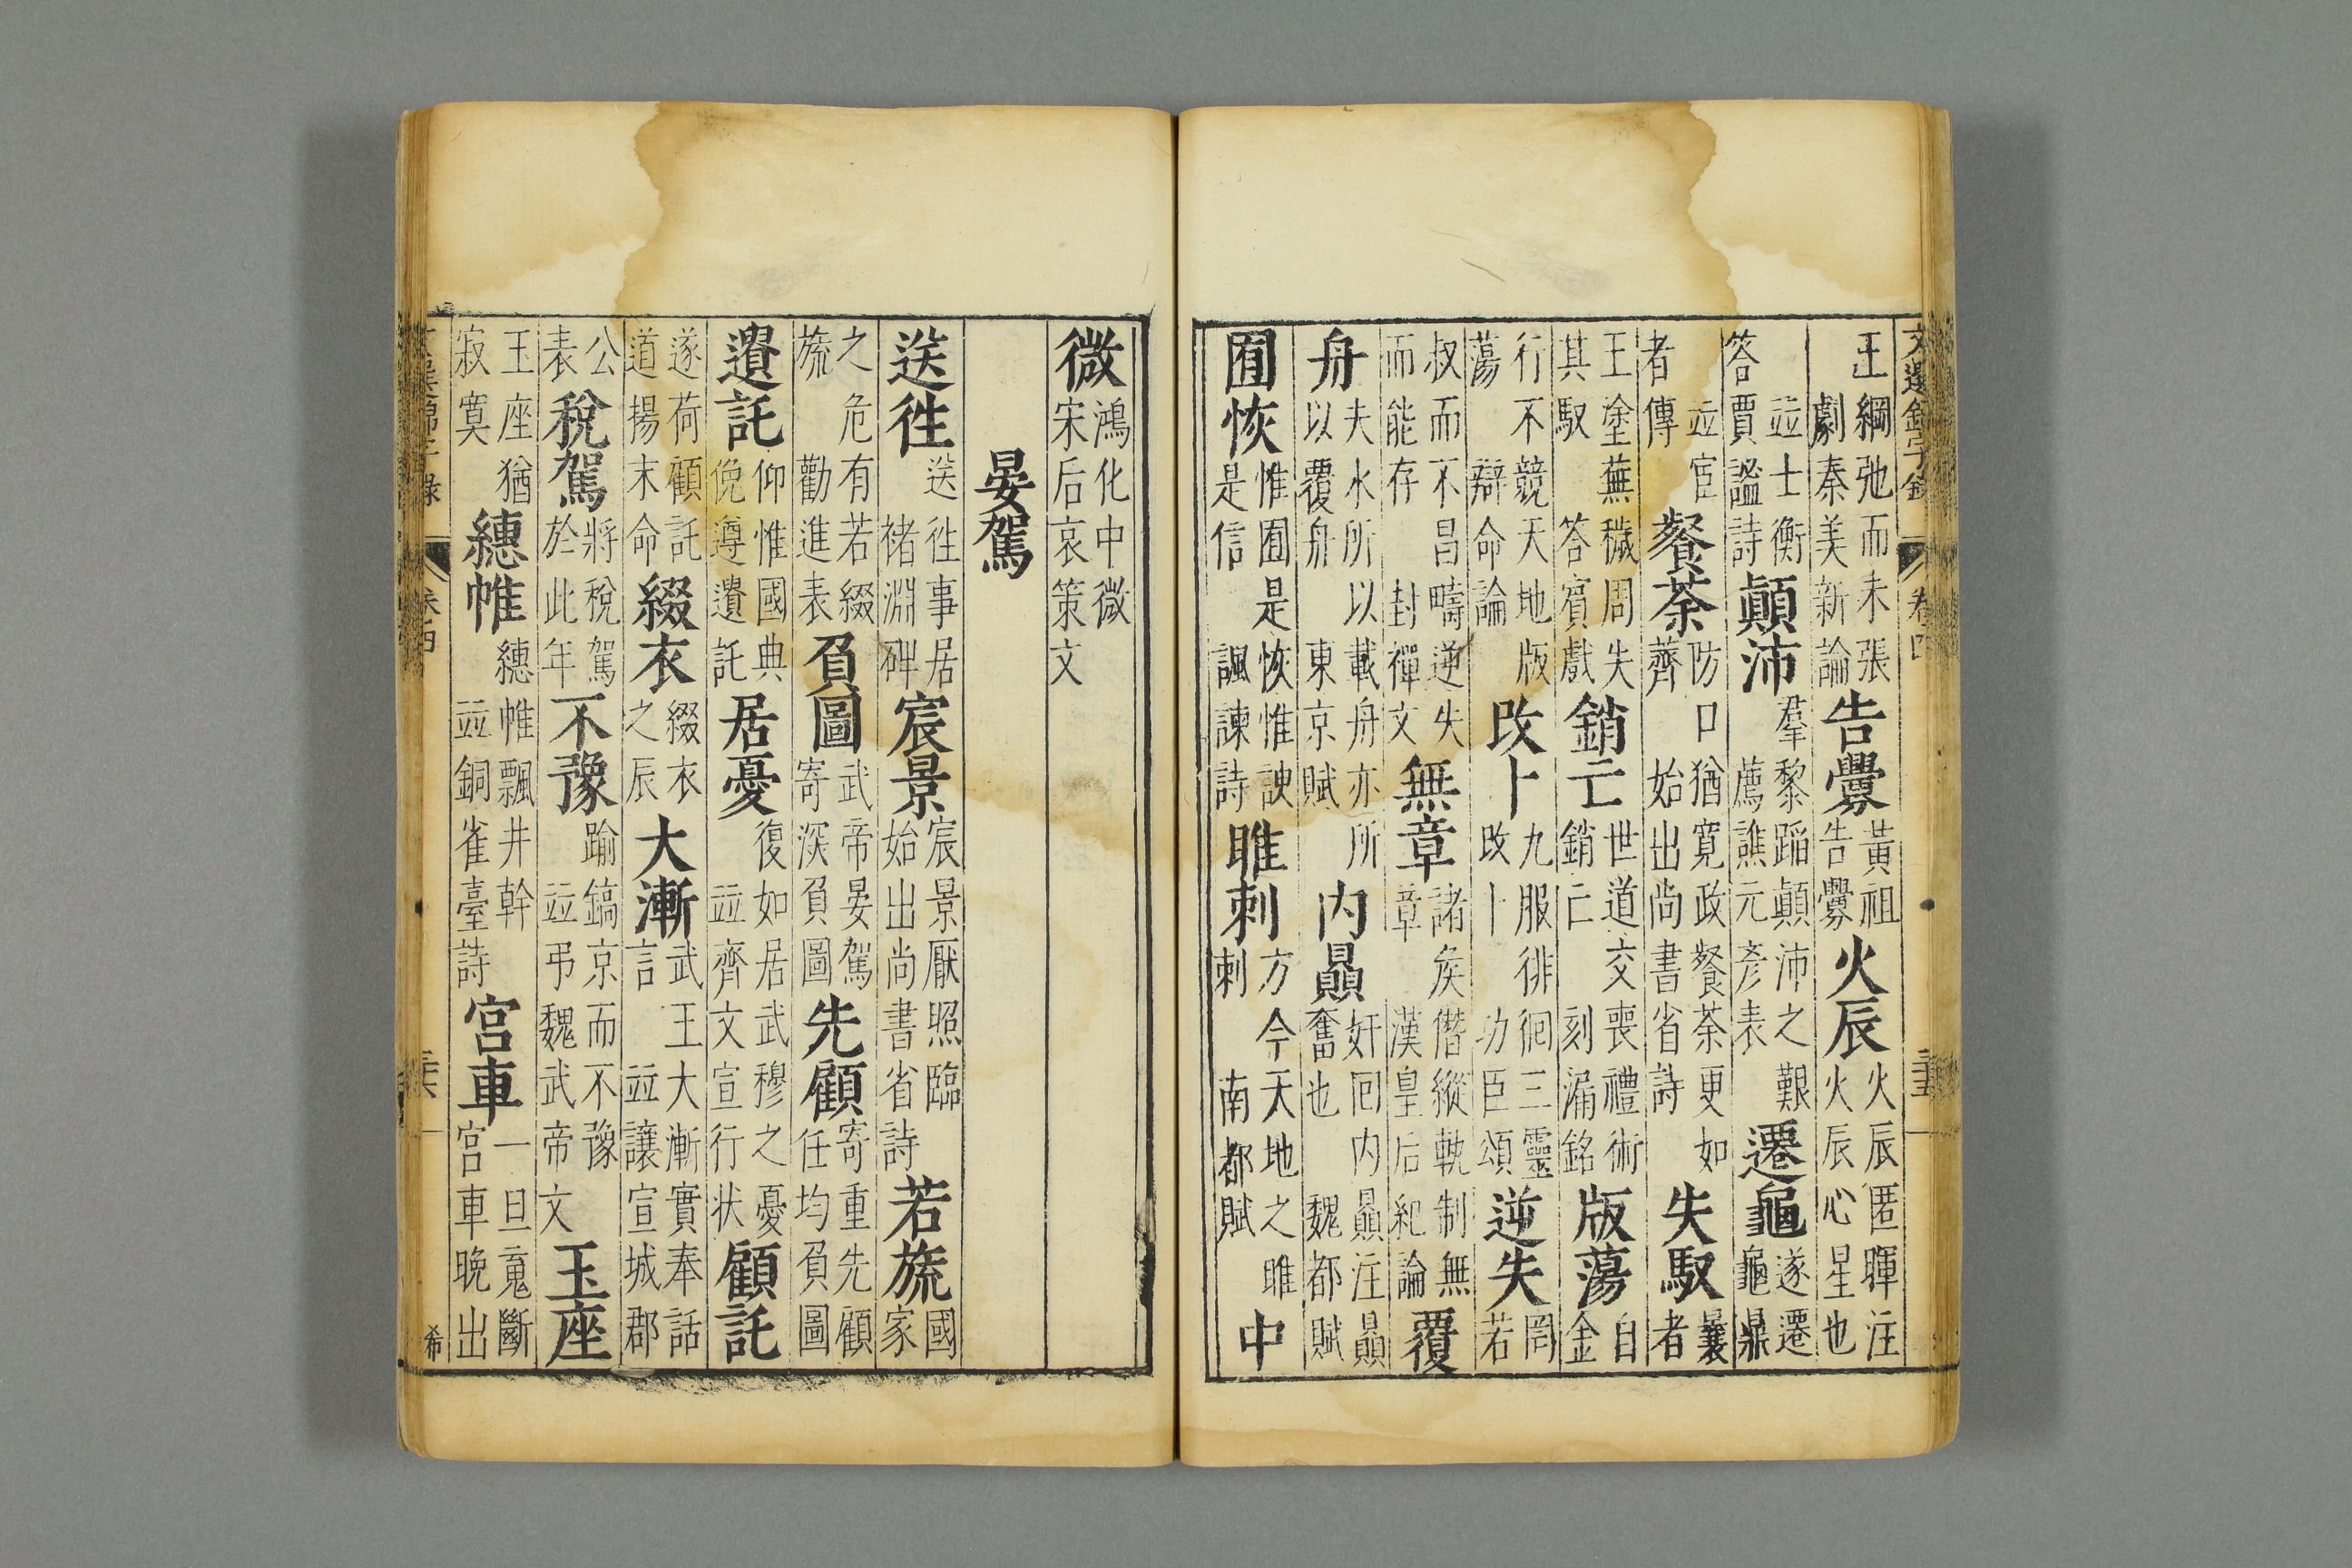 文選錦字錄 卷四 三十五
王綱弛而未張劇秦美新論告釁黃祖告釁火辰火辰匿暉注火辰心星也
竝士衡答賈謐詩顛沛羣黎蹈顛沛之艱薦譙元彥表遷龜遂遷龜鼎
竝宦者傳餐荼防口猶寬政餐荼更如薺始出尚書省詩失馭曩者
王塗蕪穢周失其馭答賓戲銷亡世道交喪禮術銷亡刻漏銘版蕩自金
行不競天地版蕩辯命論改卜九服徘徊三靈改卜功臣頌逆失罔若
叔而不昌疇逆失而能存封禪文無章諸侯僭縱軌制無章漢皇后紀論覆
舟夫水所以載舟亦所以覆舟東京賦內贔奸回內贔注贔奮也魏都賦中
囿恢惟囿是恢惟諛是信諷諫詩睢刺方今天地之睢刺南都賦
微鴻化中微宋后哀策文
晏駕
送往送往事居褚淵碑宸景宸景厭照臨始出尚書省詩若旒國家
之危有若綴旒勸進表負圖武帝晏駕寄深負圖先顧寄重先顧任均負圖
遺託仰惟國典俛遵遺託居憂復如居武穆之憂竝齊文宣行状顧託
遂荷顧託道揚末命綴衣綴衣之辰大漸武王大漸實奉話言竝讓宣城郡
公表稅駕將稅駕於此年不豫踰鎬京而不豫竝弔魏武帝文玉座
玉座猶寂寞繐帷繐帷飄井幹竝銅雀臺詩宮車一旦䰟斷宮車晚出